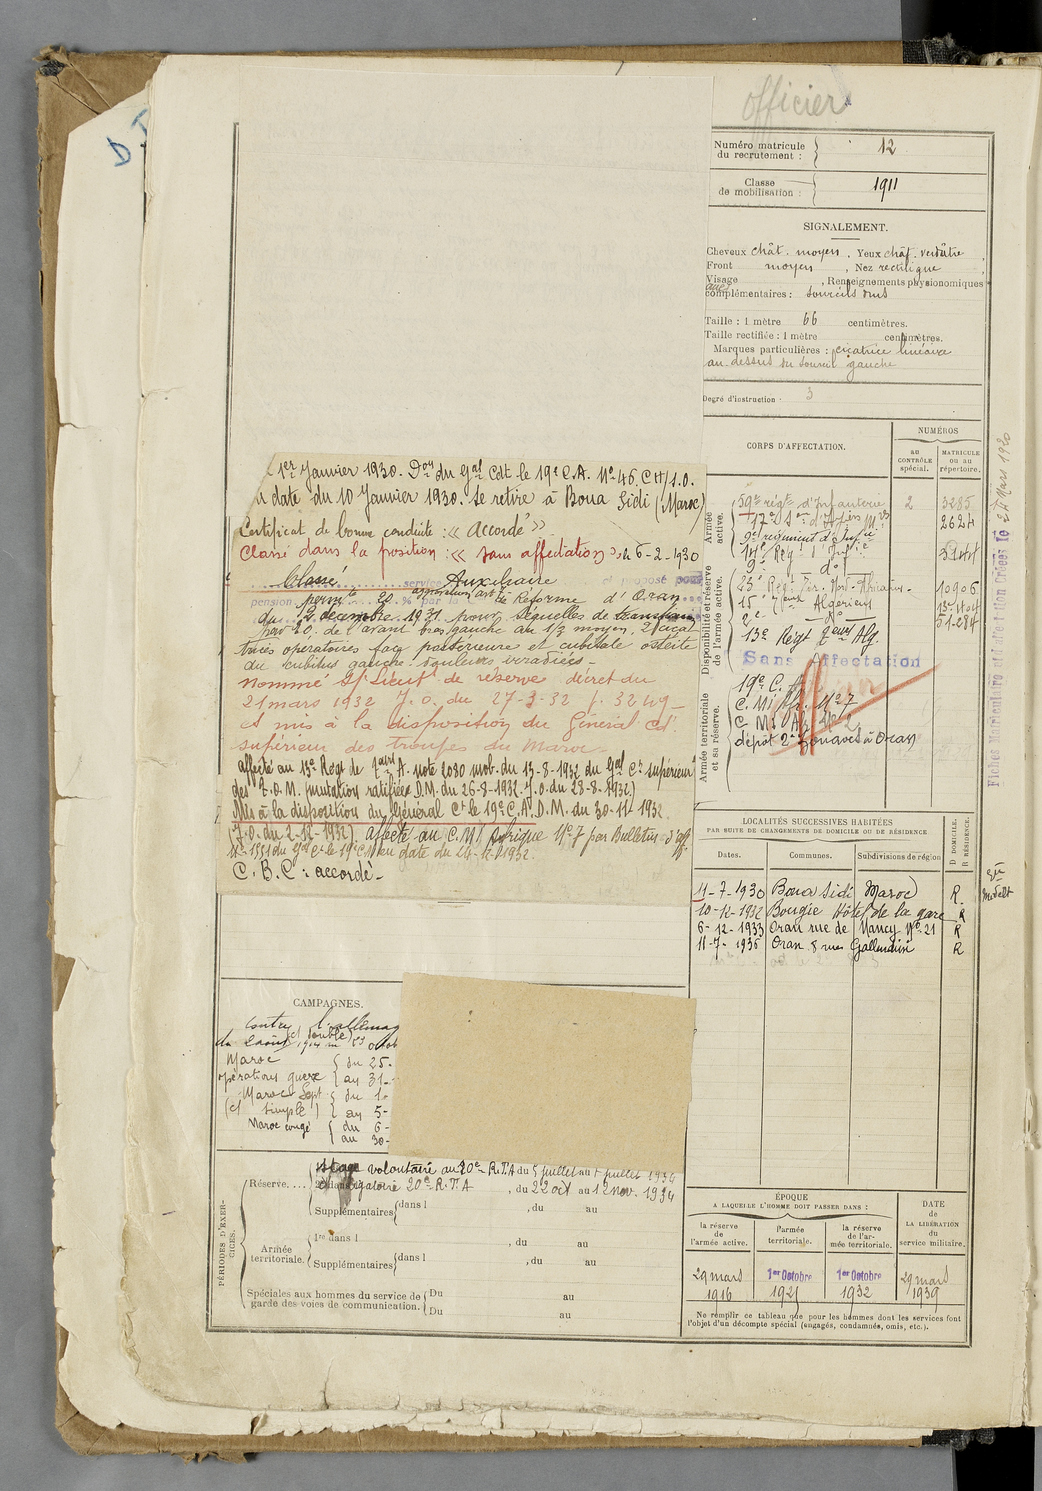 officier
Numéro matricule du recrutement : 12
Classe de mobilisation : 1911
SIGNALEMENT.
Cheveux chât. moyen, Yeux chât. verdâtre
Front moyen, Nez rectiligne
Visage , Renseignements physionomiques
complémentaires : sourcils drus
Taille : 1 mètre 66 centimètres.
Taille rectifiée : 1 mètre centimètres.
Marques particulières : cicatrice linéaire
au-dessus du sourcil gauche
Degré d'instruction : 3
CORPS D'AFFECTATION.
NUMÉROS
AU CONTRÔLE spécial.
MATRICULE ou au répertoire.
Armée active.
59e régt d'Infanterie 2 3285
2624
9e régiment d'Infie
14e Rég. d'Infie 3144
9e do
Disponibilité et réserve de l'armée active.
23e Régt Tir. Nord-Africains 10906
15e Algérien
2e do
13e Régt Alg.
Sans affectation
Armée territoriale et sa réserve.
19e C. A.
C. Mi Afr. No 7
dépôt 2e Zouaves à Oran
24 Mars 1920
1er Janvier 1930. Don du Gal Cdt le 19e C.A. No 46 CH/1.0.
en date du 10 Janvier 1930. Se retire à Boua Sidi (Maroc)
Certificat de bonne conduite : « Accordé »
Classé dans la position : « sans affectation » le 6-2-1930
Classé service Auxiliaire et proposé pour
pension permte 20 % par la Con de Réforme d'Oran
du 2 décembre 1931 pour séquelles de
de l'avant bras gauche au 1/3 moyen, 2 cicat
trices opératoires face postérieure et cubitale ostéite
du cubitus gauche. douleurs irradiées -
Nommé St Lieutt de réserve décret du
21 mars 1932 J.O. du 27-3-32 p. 3249 -
et mis à la disposition du Général Ct
supérieur des troupes du Maroc -
affecté au 13e Régt de A. note 2030 mob. du 13-8-1932 du Gal Ct supérieur
des T.O.M. mutation ratifiée D.M. du 26-8-1932. J.O. du 28-8-1932)
Mis à la disposition du Général Ct le 19e C.A. D.M. du 30-11-1932
(J.O. du 2-12-1932). affecté au C.M. No 7 par Bulletin d'aff.
No 1551 du Gal Ct le 19e C.A. en date du 24-12-1932.
C. B. C : accordé -
LOCALITÉS SUCCESSIVES HABITÉES
PAR SUITE DE CHANGEMENTS DE DOMICILE OU DE RÉSIDENCE
Dates. Communes. Subdivisions de région D DOMICILE. R RÉSIDENCE.
11-7-1930 Boua Sidi Maroc R.
10-12-1932 Bougie Hôtel de la gare R
6-12-1933 Oran rue de Nancy No 21 R
11-7-1936 Oran 8 rue R
CAMPAGNES.
Contre l'Allemag
(double)
du 2 août 1914 au 23 octob
Maroc { du 25-
opérations guerre { au 31-
Maroc Sept { du 1-
(cl simple) { au 5-
Maroc congé { du 6-
{ au 30-
PÉRIODES D'EXERCICES.
Réserve....
Stage volontaire au 20e R.T.A du 5 juillet au juillet 1934
obligatoire 20e R.T.A , du 22 oct au 12 nov. 1934
Supplémentaires { dans l , du au
Armée territoriale.
1re dans l , du au
Supplémentaires { dans l , du au
Spéciales aux hommes du service de garde des voies de communication.
Du au
Du au
ÉPOQUE
A LAQUELLE L'HOMME DOIT PASSER DANS :
la réserve de l'armée active.
l'armée territoriale.
la réserve de l'armée territoriale.
DATE de LA LIBÉRATION du service militaire.
29 mars 1916
1er Octobre
1er Octobre 1932
29 mars 1939
Ne remplir ce tableau que pour les hommes dont les services font
l'objet d'un décompte spécial (engagés, condamnés, omis, etc.).